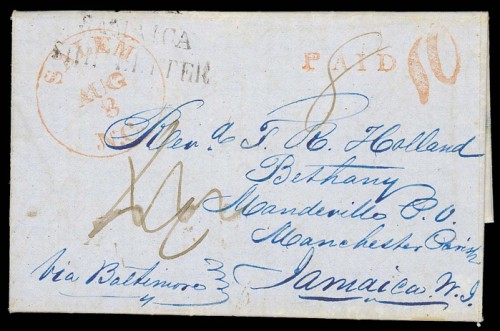 JAMAICA
SHIP LETTER
SALEM
AUG
3
N.C.
PAID
10
8
Rev. A. T. R. Holland
Bethany
Mandeville P.O.
Manchester Parish
Jamaica W.I.
via Baltimore